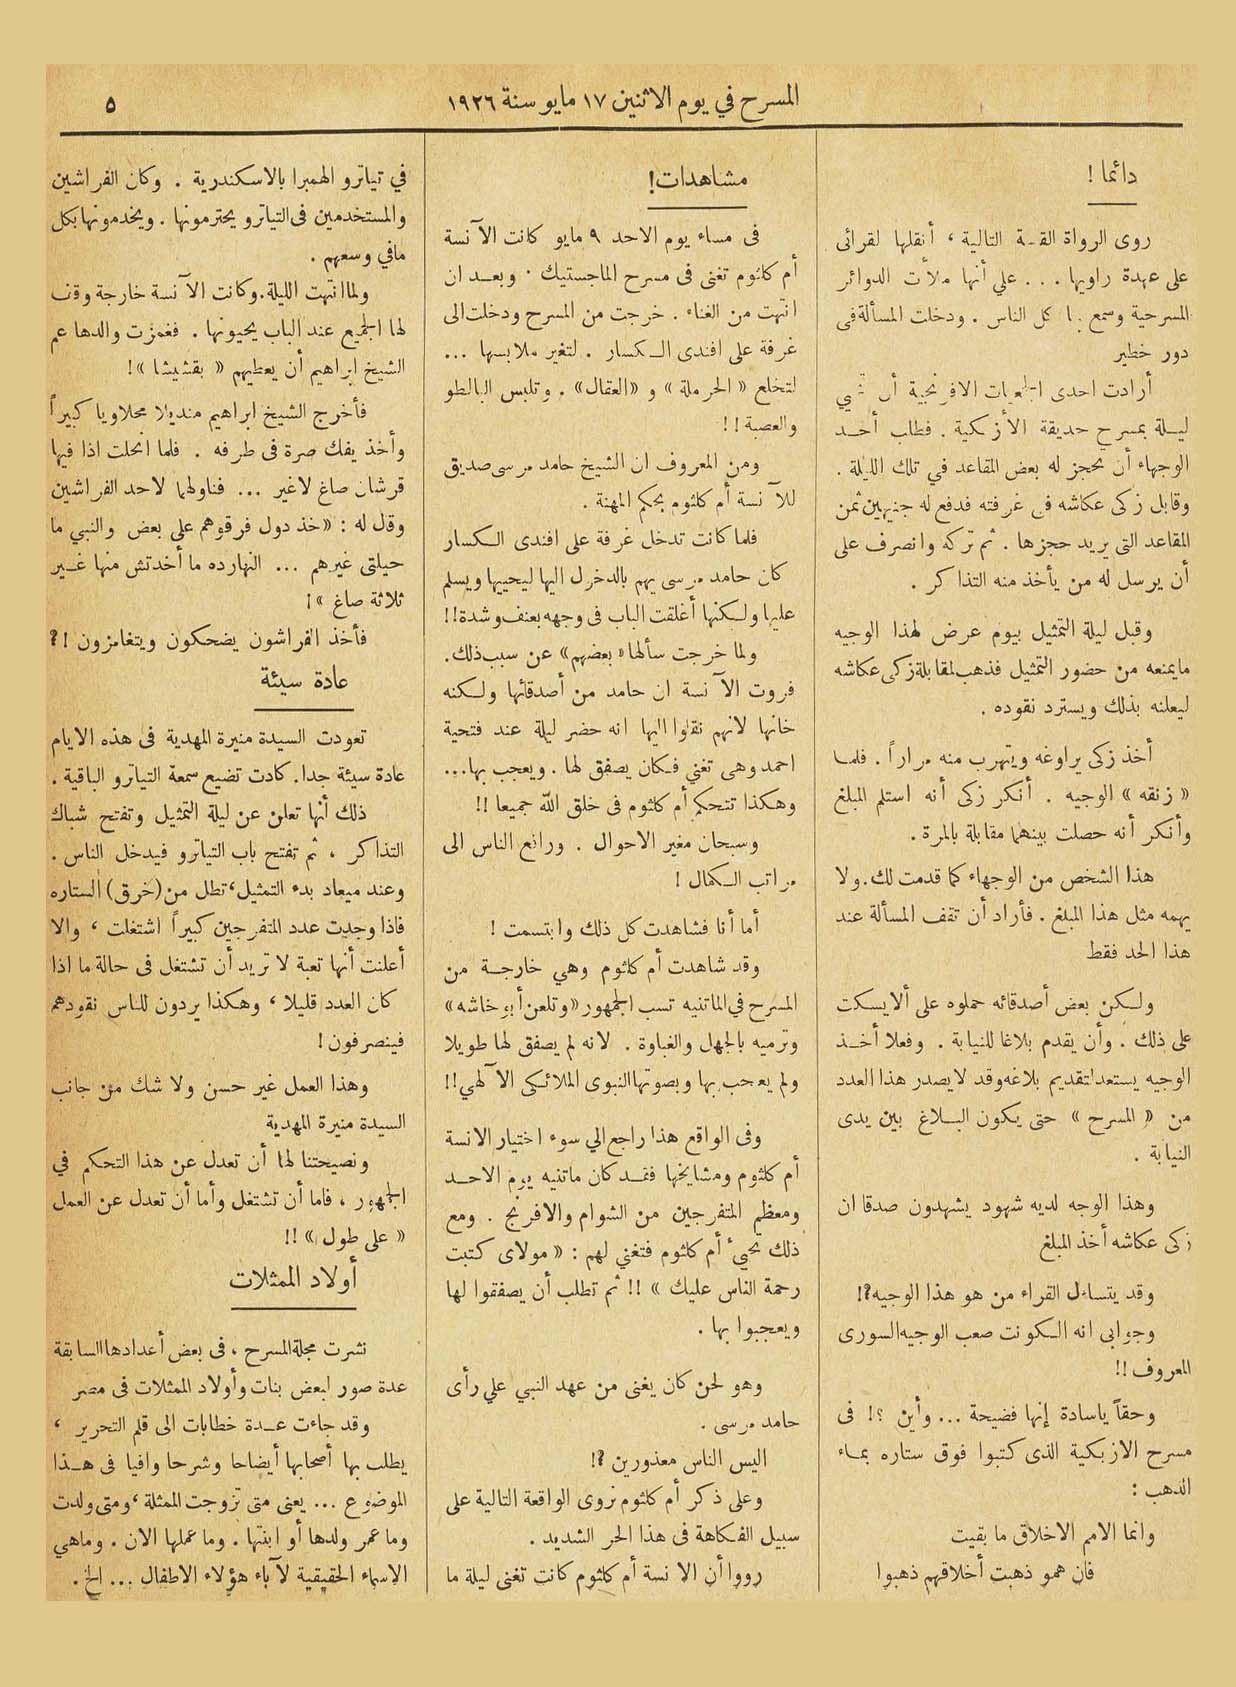 المسرح في يوم الاثنين ١٧ مايو سنة ١٩٢٦
٥
دائما !
روى الرواة القصة التالية ، أنقلها لقرائى
على عهدة راويها . . . علي أنها ملأت الدوائر
المسرحية وسمع بها كل الناس . ودخلت المسألة فى
دور خطير
أرادت احدى الجمعيات الافرنجية أن تحيي
ليلة بمسرح حديقة الأزبكية . فطلب أحد
الوجهاء أن تحجز له بعض المقاعد في تلك الليلة .
وقابل زكى عكاشه في غرفته فدفع له جنيهين ثمن
المقاعد التى يريد حجزها . ثم تركه وانصرف على
أن يرسل له من يأخذ منه التذاكر .
وقبل ليلة التمثيل بيوم عرض لهذا الوجيه
مايمنعه من حضور التمثيل فذهب لمقابلة زكى عكاشه
ليعلنه بذلك ويسترد نقوده .
أخذ زكى يراوغه ويتهرب منه مراراً . فلما
« زنقه » الوجيه . أنكر زكى أنه استلم المبلغ
وأنكر أنه حصلت بينهما مقابلة بالمرة .
هذا الشخص من الوجهاء كما قدمت لك . ولا
يهمه مثل هذا المبلغ . فأراد أن تقف المسألة عند
هذا الحد فقط
ولكن بعض أصدقائه حملوه على ألا يسكت
على ذلك . وأن يقدم بلاغا للنيابة . وفعلا أخذ
الوجيه يستعد لتقديم بلاغه وقد لا يصدر هذا العدد
من « المسرح » حتى يكون البلاغ بين يدى
النيابة .
وهذا الوجه لديه شهود يشهدون صدقا ان
زكى عكاشه أخذ المبلغ
وقد يتساءل القراء من هو هذا الوجيه ؟!
وجوابى انه الكونت صعب الوجيه السورى
المعروف !!
وحقاً ياسادة إنها فضيحة ... وأين ؟! فى
مسرح الازبكية الذى كتبوا فوق ستاره بماء
الذهب :
وانما الامم الاخلاق ما بقيت
فان همو ذهبت أخلاقهم ذهبوا
مشاهدات !
فى مساء يوم الاحد ٩ مايو كانت الآنسة
أم كلثوم تغنى فى مسرح الماجستيك . وبعد ان
انتهت من الغناء . خرجت من المسرح ودخلت الى
غرفة على افندى الكسار . لتغير ملابسها ...
لتخلع « الحرملة » و « العقال » . وتلبس البالطو
والعصبة !!
ومن المعروف ان الشيخ حامد مرسى صديق
للآنسة أم كلثوم بحكم المهنة .
فلما كانت تدخل غرفة على افندى الكسار
كان حامد مرسى يهم بالدخول اليها ليحييها ويسلم
عليها ولكنها أغلقت الباب فى وجهه بعنف وشدة !!
ولما خرجت سألها « بعضهم » عن سبب ذلك .
فروت الآنسة ان حامد من أصدقائها ولكنه
خانها لانهم نقلوا اليها انه حضر ليلة عند فتحية
احمد وهى تغني فكان يصفق لها . ويعجب بها ...
وهكذا تتحكم أم كلثوم فى خلق الله جميعا !!
وسبحان مغير الاحوال . ورافع الناس الى
مراتب الكمال !
أما أنا فشاهدت كل ذلك وابتسمت !
وقد شاهدت أم كلثوم وهي خارجة من
المسرح في الماتنيه تسب الجمهور « وتلعن أبو خاشه »
وترميه بالجهل والغباوة . لانه لم يصفق لها طويلا
ولم يعجب بها وبصوتها النبوى الملائكى الآلهي !!
وفى الواقع هذا راجع الي سوء اختيار الانسة
أم كلثوم ومشايخها فقد كان ماتنيه يوم الاحد
ومعظم المتفرجين من الشوام والافرنج . ومع
ذلك تجيء أم كلثوم فتغني لهم : « مولاى كتبت
رحمة الناس عليك » !! ثم تطلب أن يصفقوا لها
ويعجبوا بها .
وهو لحن كان يغنى من عهد النبي علي رأى
حامد مرسى .
اليس الناس معذورين ؟!
وعلى ذكر أم كلثوم نروى الواقعة التالية على
سبيل الفكاهة فى هذا الحر الشديد .
رووا أن الانسة أم كلثوم كانت تغنى ليلة ما
في تياترو الهمبرا بالاسكندرية . وكان الفراشين
والمستخدمين فى التياترو يحترمونها . ويخدمونها بكل
مافي وسعهم .
ولما انتهت الليلة . وكانت الآنسة خارجة وقف
لها الجميع عند الباب يحيونها . فغمزت والدها عم
الشيخ ابراهيم أن يعطيهم « بقشيشا » !
فأخرج الشيخ ابراهيم منديلا محلاويا كبيراً
وأخذ يفك صرة فى طرفه . فلما انحلت اذا فيها
قرشان صاغ لاغير ... فناولهما لاحد الفراشين
وقال له : « خد دول فرقوهم على بعض والنبي ما
حيلتى غيرهم ... النهارده ما أخدتش منها غير
ثلاثة صاغ » !
فأخذ الفراشون يضحكون ويتغامزون !؟
عادة سيئة
تعودت السيدة منيرة المهدية فى هذه الايام
عادة سيئة جدا . كادت تضيع سمعة التياترو الباقية .
ذلك أنها تعلن عن ليلة التمثيل وتفتح شباك
التذاكر ، ثم تفتح باب التياترو فيدخل الناس .
وعند ميعاد بدء التمثيل ، تطل من (خرق) الستاره
فاذا وجدت عدد المتفرجين كبيراً اشتغلت ، والا
أعلنت أنها تعبة لا تريد أن تشتغل فى حالة ما اذا
كان العدد قليلا ، وهكذا يردون للناس نقودهم
فينصرفون !
وهذا العمل غير حسن ولا شك من جانب
السيدة منيرة المهدية
ونصيحتنا لها أن تعدل عن هذا التحكم في
الجمهور ، فاما أن تشتغل وأما أن تعدل عن العمل
« على طول » !!
أولاد الممثلات
نشرت مجلة المسرح ، فى بعض أعدادها السابقة
عدة صور لبعض بنات وأولاد الممثلات فى مصر
وقد جاءت عدة خطابات الى قلم التحرير ،
يطلب بها أصحابها أيضاحا وشرحا وافيا فى هذا
الموضوع ... يعنى متى تزوجت الممثلة ، ومتى ولدت
وما عمر ولدها أو ابنتها . وما عملها الان . وماهي
الاسماء الحقيقية لآباء هؤلاء الاطفال ... الخ .